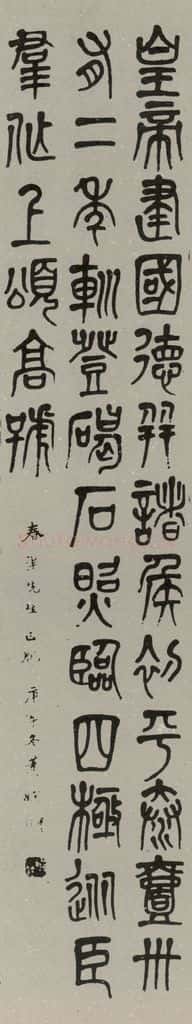 皇帝建國德并諸侯初平泰壹卅
有二年巡登碣石照臨四極從臣
羣作上頌高號
春先生正庚午冬黃